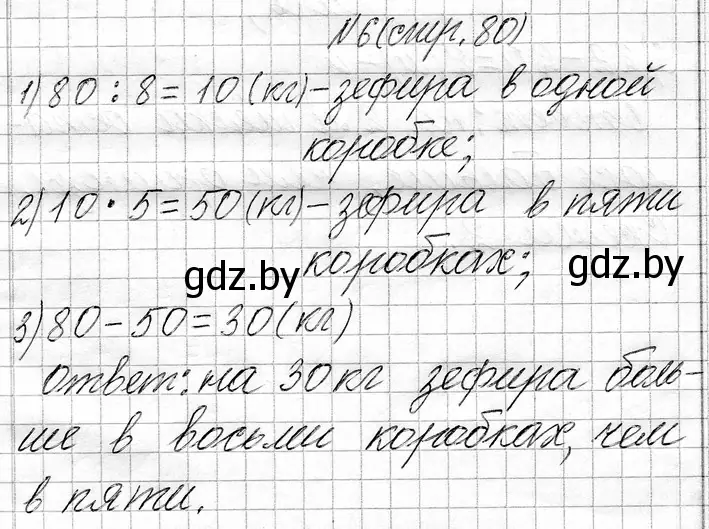 №6(стр. 80)
1) 80 : 8 = 10 (кг) – зефира в одной
коробке;
2) 10 · 5 = 50 (кг) – зефира в пяти
коробках;
gdz.by
gdz.by
3) 80 – 50 = 30 (кг)
Ответ: на 30 кг зефира боль-
ше в восьми коробках, чем
в пяти.